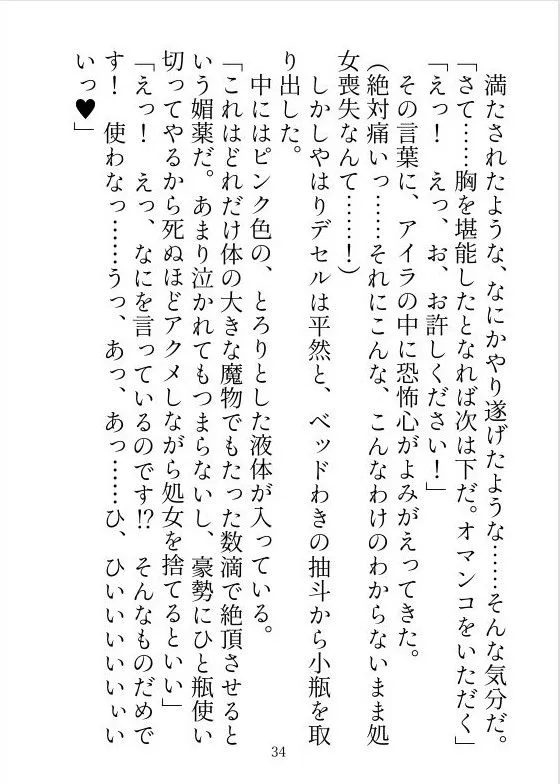 満たされたような、なにかやり遂げたような……そんな気分だ。
「さて……胸を堪能したとなれば次は下だ。オマンコをいただく」
「えっ！　えっ、お、お許しください！」
その言葉に、アイラの中に恐怖心がよみがえってきた。
(絶対痛いっ……それにこんな、こんなわけのわからないまま処
女喪失なんて……！)
しかしやはりデセルは平然と、ベッドわきの抽斗から小瓶を取
り出した。
中にはピンク色の、とろりとした液体が入っている。
「これはどれだけ体の大きな魔物でもたった数滴で絶頂させると
いう媚薬だ。あまり泣かれてもつまらないし、豪勢にひと瓶使い
切ってやるから死ぬほどアクメしながら処女を捨てるといい」
「えっ！　えっ、なにを言っているのです!?　そんなものだめで
す！　使わなっ……うっ、あっ、あっ……ひ、ひいいいいいぃい
いっ♥」
34